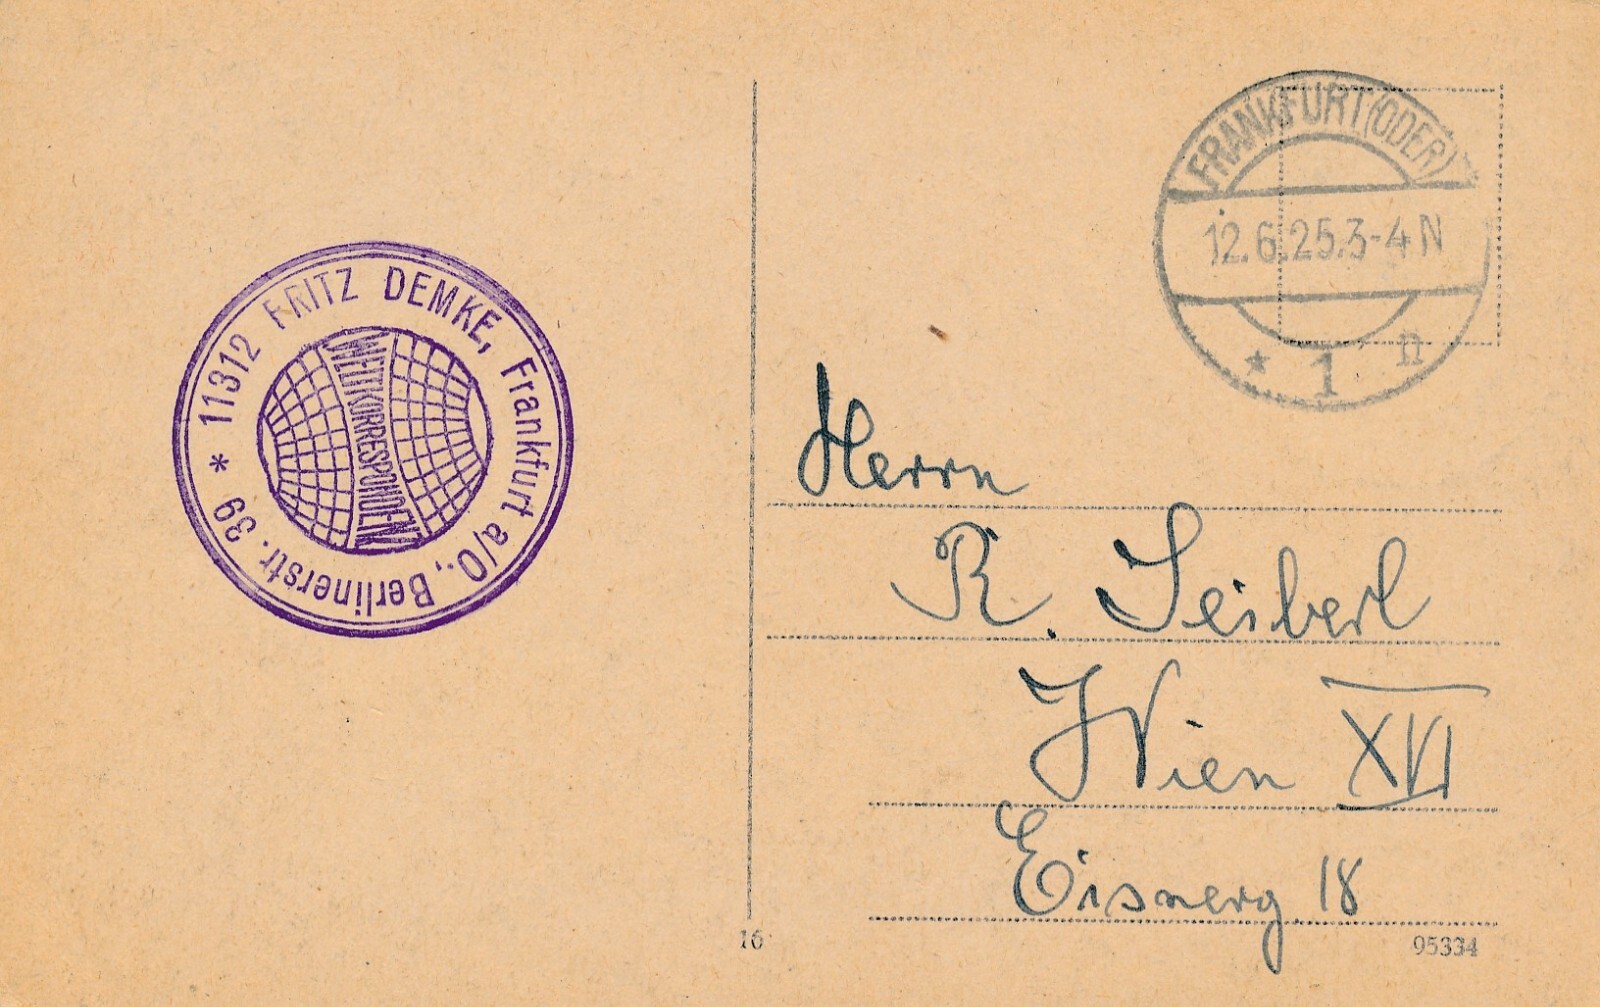 FRANKFURT (ODER)
12.6.25.3-4 N
* 1 n
* 11312 FRITZ DEMKE, Frankfurt a/O., Berlinerstr. 39
WELTKORRESPONDENT
Herrn
R. Seiberl
Wien XVI
Eisnerg. 18
16
95334